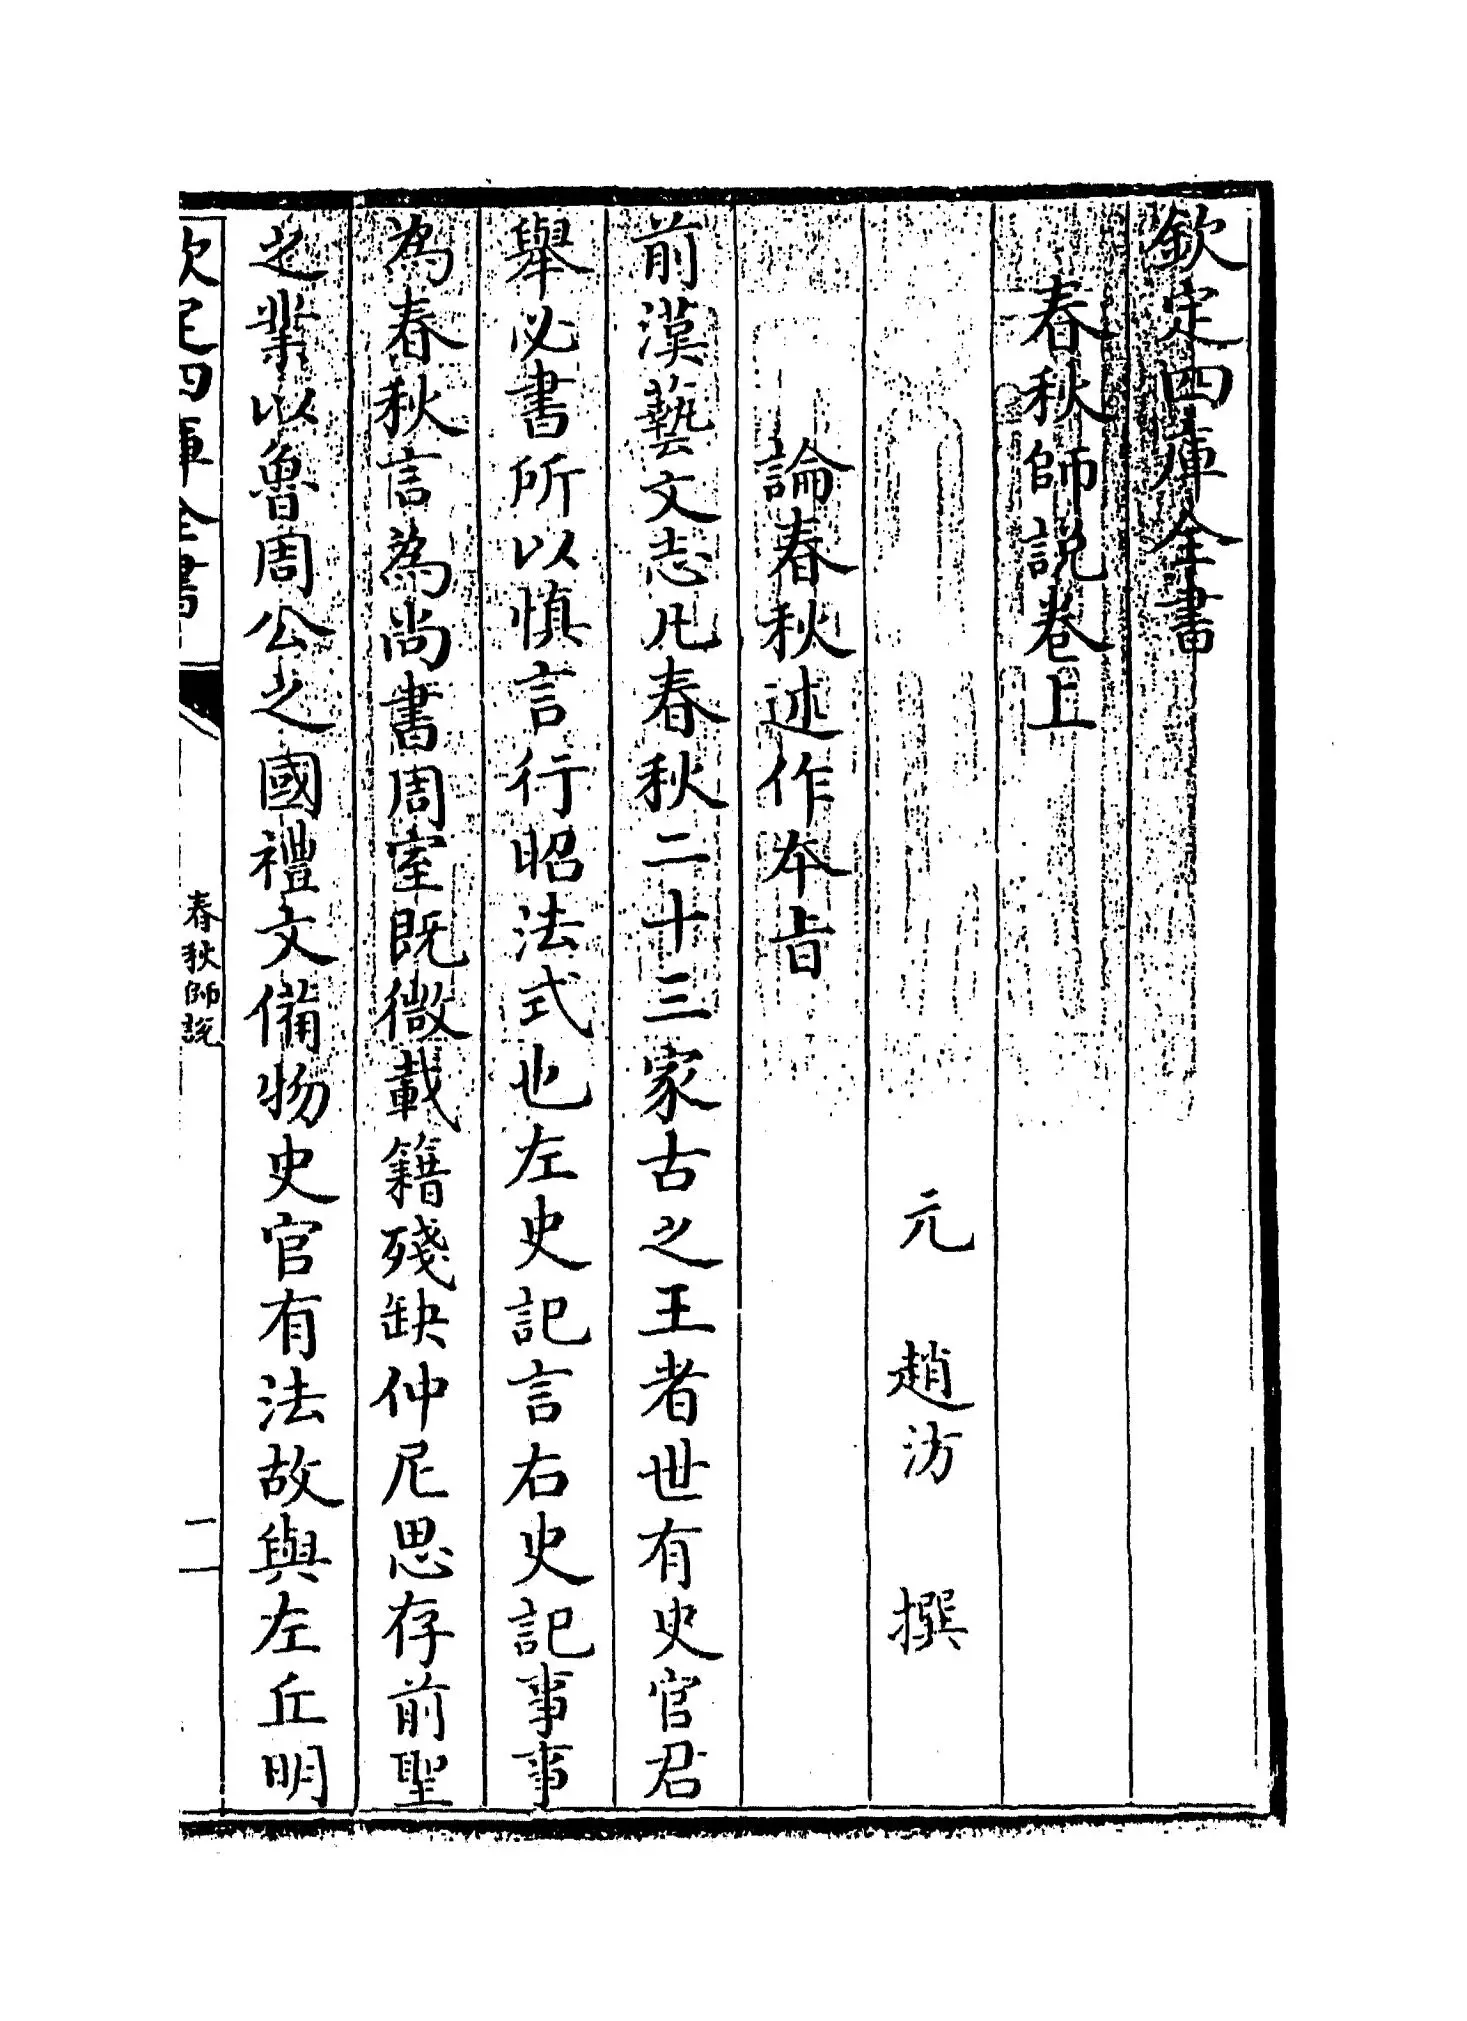 欽定四庫全書
春秋師説卷上
元 趙汸 撰
論春秋述作本旨
前漢藝文志凡春秋二十三家古之王者世有史官君
舉必書所以慎言行昭法式也左史記言右史記事事
為春秋言為尚書周室既微載籍殘缺仲尼思存前聖
之業以魯周公之國禮文備物史官有法故與左丘明
欽定四庫全書
春秋師說
一